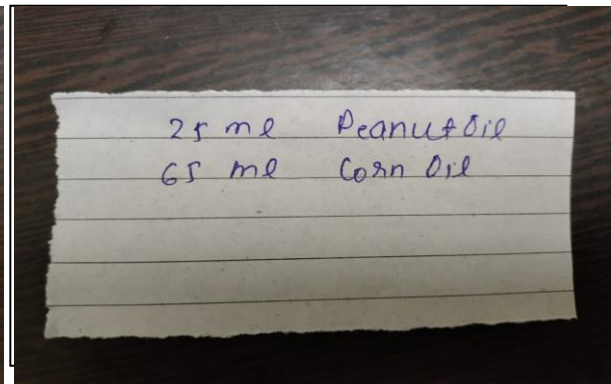 25 ml Peanut Oil
65 ml Corn Oil